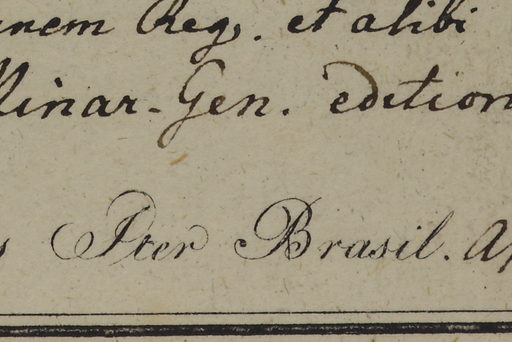 Reg. et alibi
Minar-Gen. edition
Iter Brasil.